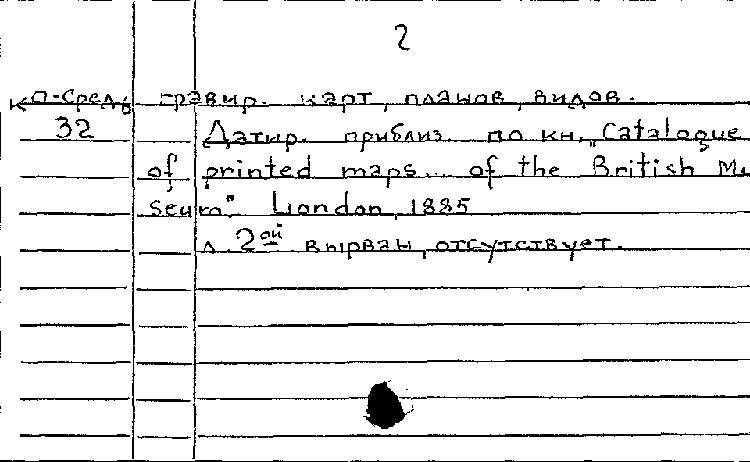 2
К п-сред. гравир. карт, планов, видов.
32 Датир. приблиз. по кн. „Catalogue
of printed maps... of the British Mu
seum". London, 1885
л. 2ой вырван, отсутствует.